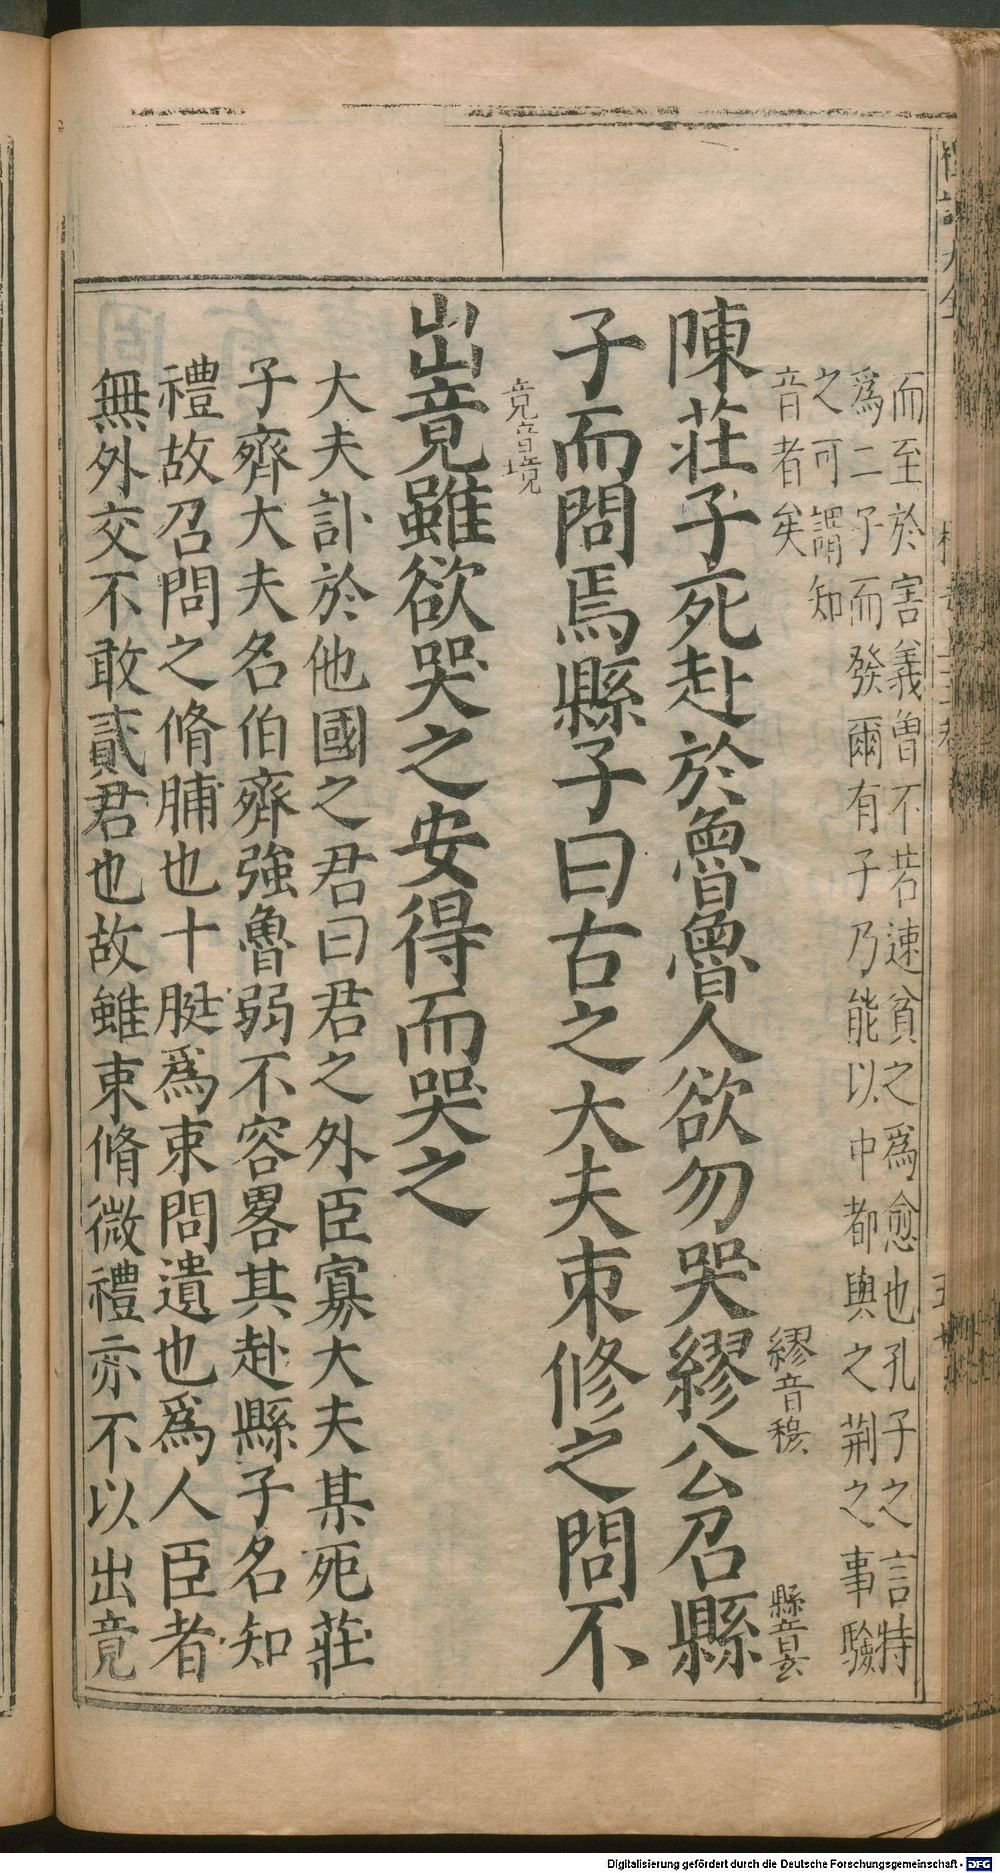 而至於害義曾不若速貧之爲愈也孔子之言特
爲二子而發爾有子乃能以中都與之荆之事驗
之可謂知
音者矣
繆音穆 縣音玄
陳莊子死赴於魯魯人欲勿哭繆公召縣
子而問焉縣子曰古之大夫束修之問不
竟音境
出竟雖欲哭之安得而哭之
大夫訃於他國之君曰君之外臣寡大夫某死莊
子齊大夫名伯齊強魯弱不容畧其赴縣子名知
禮故召問之脩脯也十脡爲束問遺也爲人臣者
無外交不敢貳君也故雖束脩微禮亦不以出竟
Digitalisierung gefördert durch die Deutsche Forschungsgemeinschaft - DFG